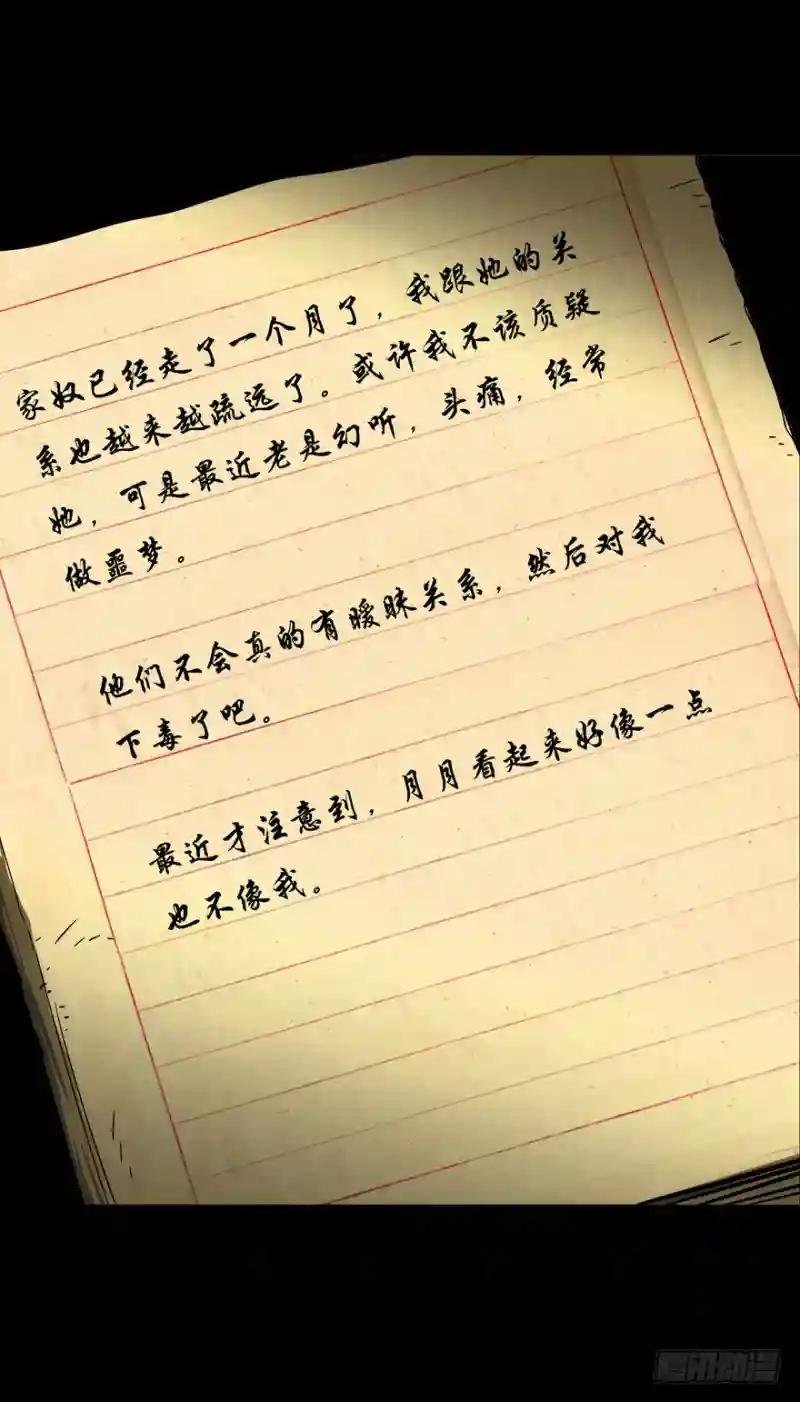 家奴已经走了一个月了，我跟她的关
系也越来越疏远了。或许我不该质疑
她，可是最近老是幻听，头痛，经常
做噩梦。
他们不会真的有暧昧关系，然后对我
下毒了吧。
最近才注意到，月月看起来好像一点
也不像我。
腾讯动漫